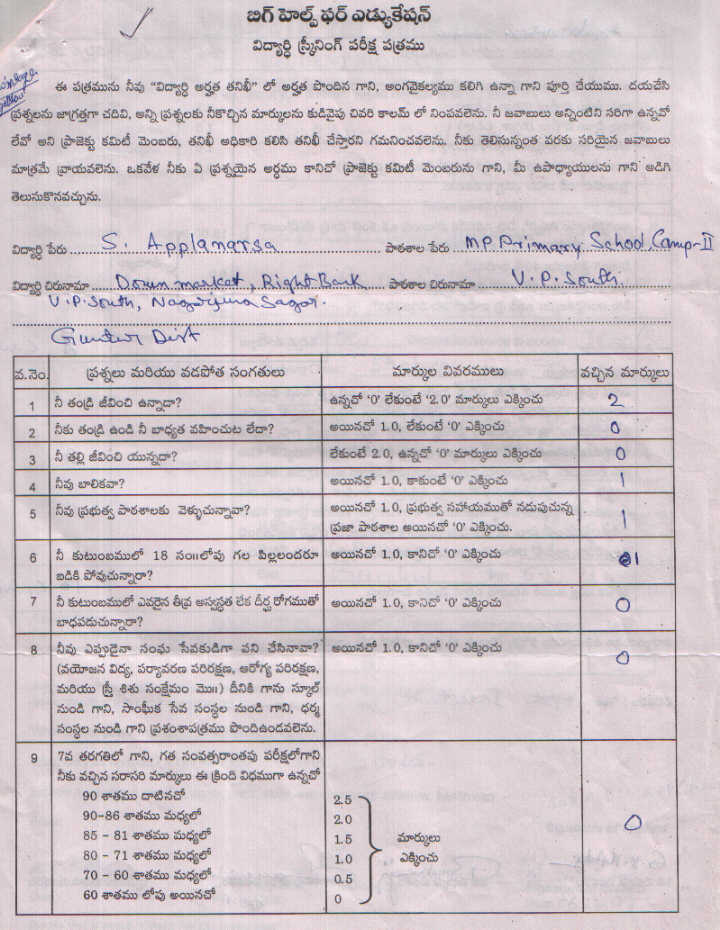 బిగ్ హెల్ప్ ఫర్ ఎడ్యుకేషన్
విద్యార్ధి స్క్రీనింగ్ పరీక్ష పత్రము
ఈ పత్రమును నీవు "విద్యార్ధి అర్హత తనిఖీ" లో అర్హత పొందిన గాని, అంగవైకల్యము కలిగి ఉన్నా గాని పూర్తి చేయుము. దయచేసి
ప్రశ్నలను జాగ్రత్తగా చదివి, అన్ని ప్రశ్నలకు నీకొచ్చిన మార్కులను కుడివైపు చివరి కాలమ్ లో నింపవలెను. నీ జవాబులు అన్నింటిని సరిగా ఉన్నవో
లేవో అని ప్రాజెక్టు కమిటీ మెంబరు, తనిఖీ అధికారి కలిసి తనిఖీ చేస్తారని గమనించవలెను. నీకు తెలిసున్నంత వరకు సరియైన జవాబులు
మాత్రమే వ్రాయవలెను. ఒకవేళ నీకు ఏ ప్రశ్నయైన అర్ధము కానిచో ప్రాజెక్టు కమిటీ మెంబరును గాని, మీ ఉపాధ్యాయులను గాని అడిగి
తెలుసుకొనవచ్చును.
విద్యార్ధి పేరు S. Applanarsa పాఠశాల పేరు MP Primary School, Camp-II
విద్యార్ధి చిరునామా Down market, Right Bank పాఠశాల చిరునామా V.P. South
V.P. South, Nagarjuna Sagar.
Guntur Dist
వ.నెం. ప్రశ్నలు మరియు వడపోత సంగతులు మార్కుల వివరములు వచ్చిన మార్కులు
1 నీ తండ్రి జీవించి ఉన్నాడా? ఉన్నచో '0' లేకుంటే '2.0' మార్కులు ఎక్కించు 2
2 నీకు తండ్రి ఉండి నీ బాధ్యత వహించుట లేదా? అయినచో 1.0, లేకుంటే '0' ఎక్కించు 0
3 నీ తల్లి జీవించి యున్నదా? లేకుంటే 2.0, ఉన్నచో '0' మార్కులు ఎక్కించు 0
4 నీవు బాలికవా? అయినచో 1.0, కాకుంటే '0' ఎక్కించు 1
5 నీవు ప్రభుత్వ పాఠశాలకు వెళ్ళుచున్నావా? అయినచో 1.0, ప్రభుత్వ సహాయముతో నడుపుచున్న
ప్రజా పాఠశాల అయినచో '0' ఎక్కించు. 1
6 నీ కుటుంబములో 18 సం॥లోపు గల పిల్లలందరూ అయినచో 1.0, కానిచో '0' ఎక్కించు 1
బడికి పోవుచున్నారా?
7 నీ కుటుంబములో ఎవరైన తీవ్ర అస్వస్థత లేక దీర్ఘ రోగముతో అయినచో 1.0, కానిచో '0' ఎక్కించు 0
బాధపడుచున్నారా?
8 నీవు ఎప్పుడైనా సంఘ సేవకుడిగా పని చేసినావా? అయినచో 1.0, కానిచో '0' ఎక్కించు 0
(వయోజన విద్య, పర్యావరణ పరిరక్షణ, ఆరోగ్య పరిరక్షణ,
మరియు స్త్రీ శిశు సంక్షేమం మొ॥) దీనికి గాను స్కూల్
నుండి గాని, సాంఘీక సేవ సంస్థల నుండి గాని, ధర్మ
సంస్థల నుండి గాని ప్రశంశాపత్రము పొందిఉండవలెను.
9 7వ తరగతిలో గాని, గత సంవత్సరాంతపు పరీక్షలోగాని
నీకు వచ్చిన సరాసరి మార్కులు ఈ క్రింది విధముగా ఉన్నచో
90 శాతము దాటినచో 2.5
90-86 శాతము మధ్యలో 2.0
85 - 81 శాతము మధ్యలో 1.5 మార్కులు 0
80 - 71 శాతము మధ్యలో 1.0 ఎక్కించు
70 - 60 శాతము మధ్యలో 0.5
60 శాతము లోపు అయినచో 0